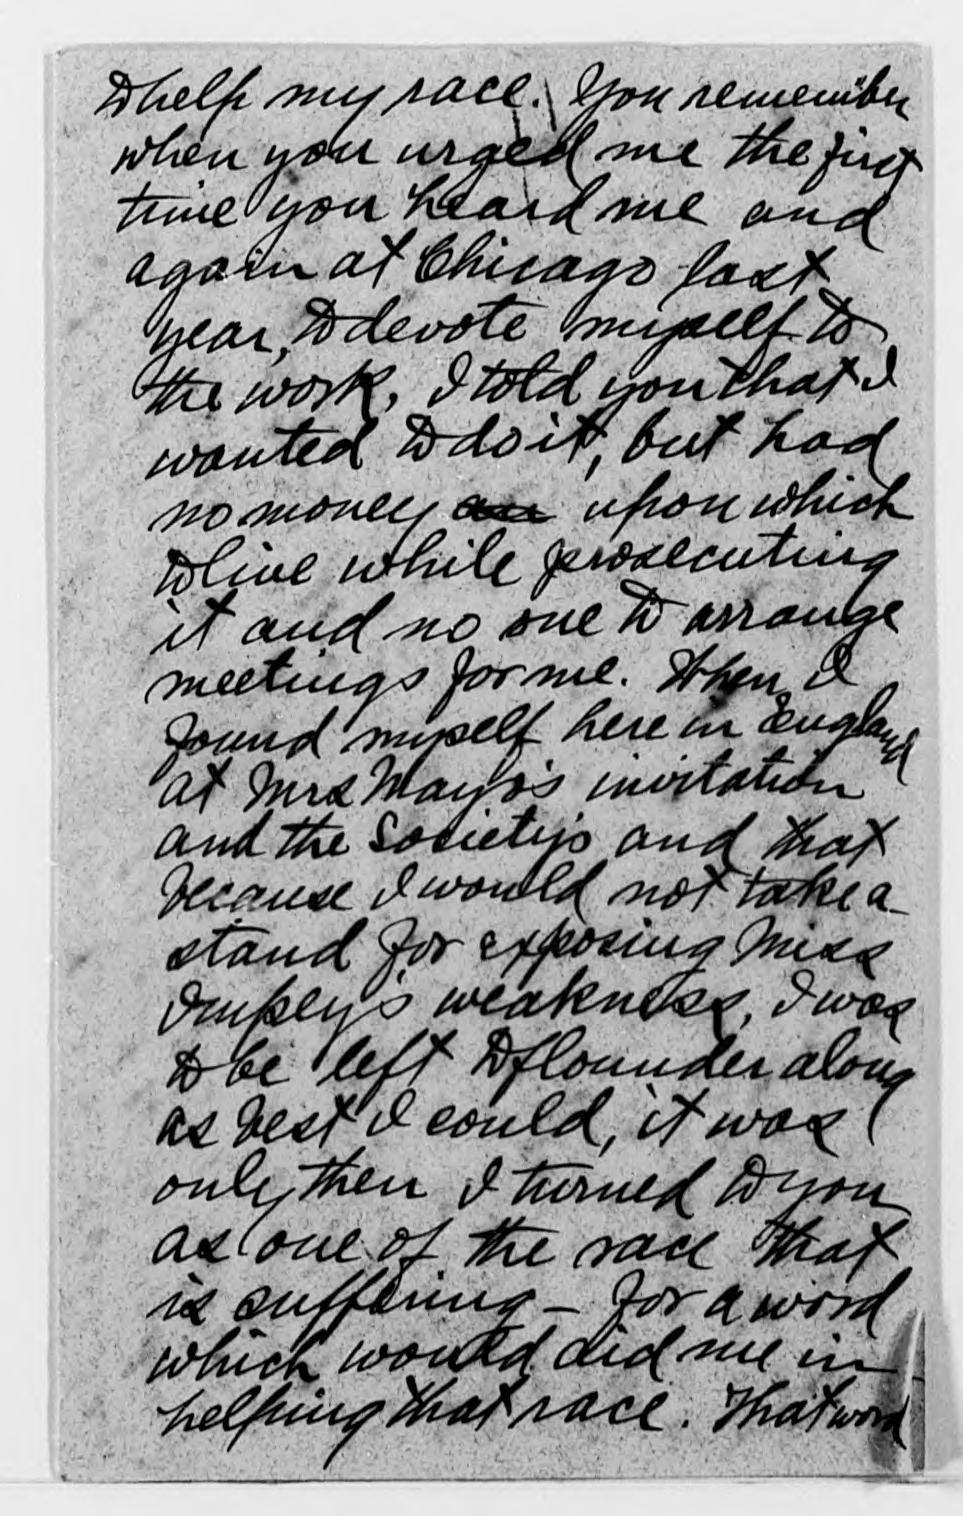 to help my race. You remember
when you urged me the first
time you heard me and
again at Chicago last
year, to devote myself to
the work, I told you that I
wanted to do it, but had
no money an upon which
to live while prosecuting
it and no one to arrange
meetings for me. When I
found myself here in England
at Mrs Mayo's invitation
and the Society's and that
because I would not take a
stand for exposing Miss
Impey's weakness, I was
to be left to flounder along
as best I could, it was
only then I turned to you
as one of the race that
is suffering – for a word
which would aid me in
helping that race. That word